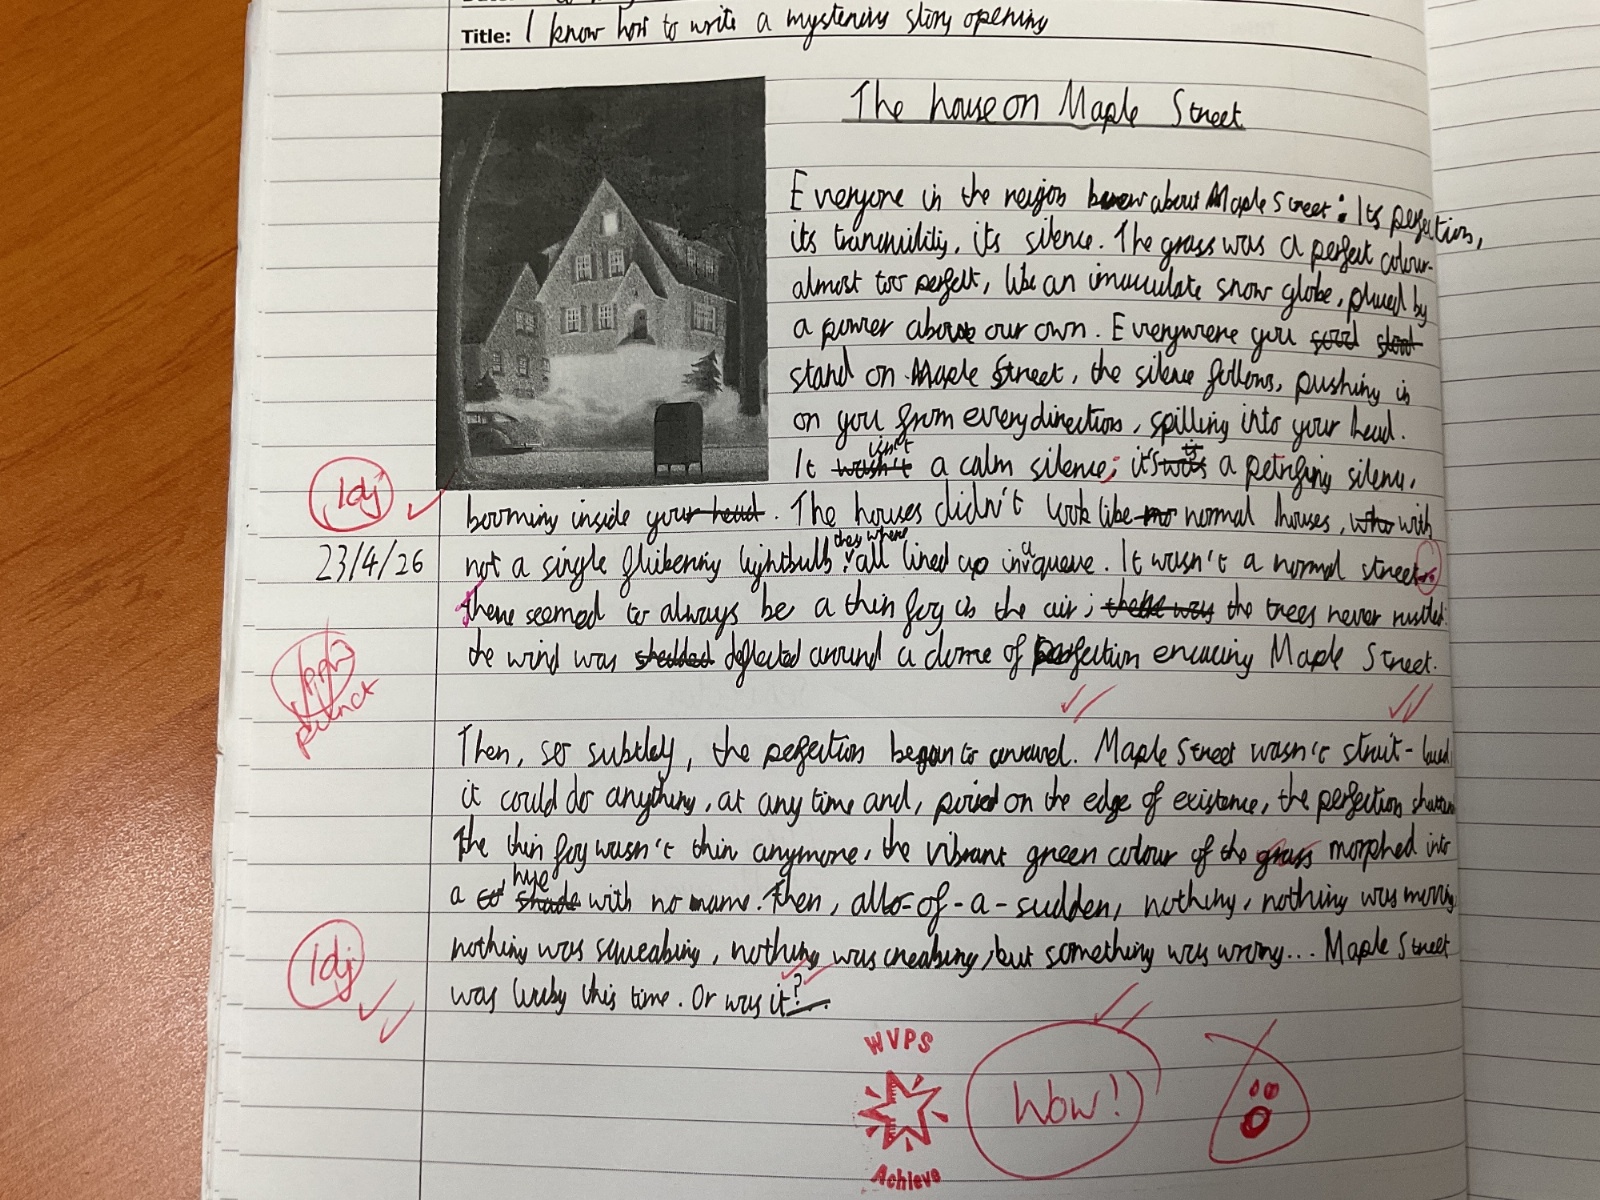 Title: I know how to write a mysterious story opening
The house on Maple Street
Everyone in the reigon knew about Maple Street: Its perfection,
its tranquility, its silence. The grass was a perfect colour-
almost too perfect, like an imaculate snow globe, placed by
a power above our own. Everywere you
stand on Maple Street, the silence follows, pushing in
on you from every direction, spilling into your head.
It isn't a calm silence; it's a petrifying silence,
booming inside your head. The houses didn't look like normal houses, with
not a single flickering lightbulb: they where all lined up in a queue. It wasn't a normal street
There seemed to always be a thin fog in the air; the trees never rustled:
the wind was deflected around a dome of perfection encacing Maple Street.
Then, so subtley, the perfection began to unravel. Maple Street wasn't strait-laced
it could do anything, at any time and, on the edge of existence, the perfection
The thin fog wasn't thin anymore, the vibrant green colour of the grass morphed into
a hue with no name. Then, all-of-a-sudden, nothing, nothing was moving
nothing was squeaking, nothing was creaking, but something was wrong... Maple Street
was lucky this time. Or was it?
1dj
23/4/26
punct
1dj
WVPS
Achieve
Wow!